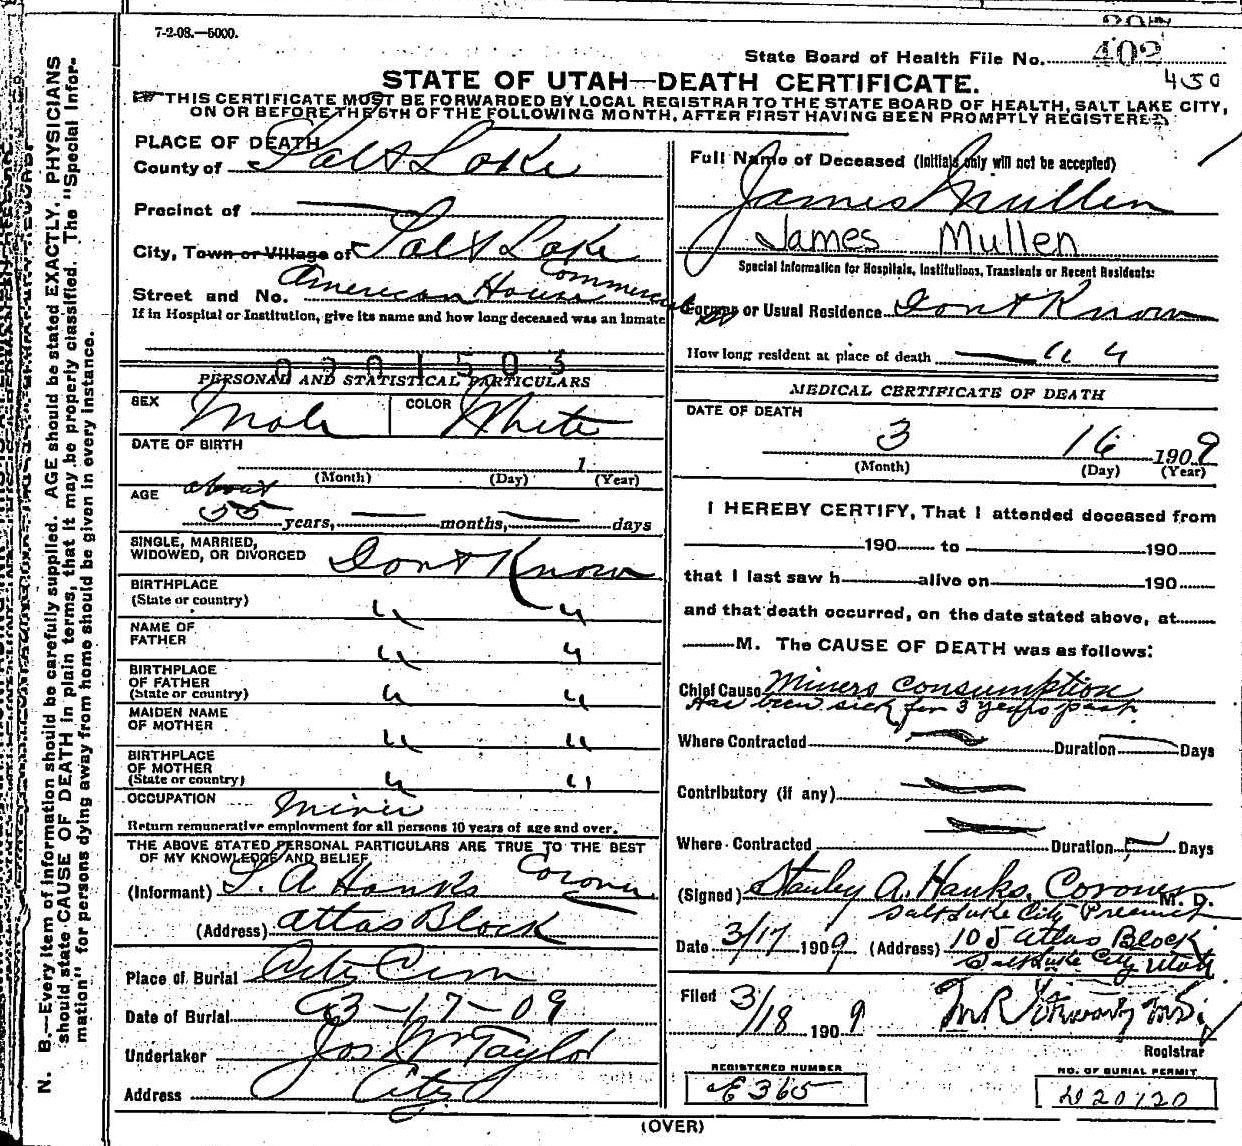 7-2-08.—5000.
State Board of Health File No. 402
450
STATE OF UTAH—DEATH CERTIFICATE.
THIS CERTIFICATE MUST BE FORWARDED BY LOCAL REGISTRAR TO THE STATE BOARD OF HEALTH, SALT LAKE CITY,
ON OR BEFORE THE 5TH OF THE FOLLOWING MONTH, AFTER FIRST HAVING BEEN PROMPTLY REGISTERED
PLACE OF DEATH
County of Salt Lake
Precinct of
City, Town or Village of Salt Lake
Street and No. American House Commercial
If in Hospital or Institution, give its name and how long deceased was an inmate
0301503
PERSONAL AND STATISTICAL PARTICULARS
SEX Male COLOR White
DATE OF BIRTH
1
(Month) (Day) (Year)
AGE about
55 years, months, days
SINGLE, MARRIED,
WIDOWED, OR DIVORCED Dont Know
BIRTHPLACE
(State or country) " "
NAME OF
FATHER " "
BIRTHPLACE
OF FATHER
(State or country) " "
MAIDEN NAME
OF MOTHER " "
BIRTHPLACE
OF MOTHER
(State or country) " "
OCCUPATION Miner
Return remunerative employment for all persons 10 years of age and over.
THE ABOVE STATED PERSONAL PARTICULARS ARE TRUE TO THE BEST
OF MY KNOWLEDGE AND BELIEF
(Informant) S. A Hanks Coroner
(Address) Atlas Block
Place of Burial City Cem
Date of Burial 3-17-09
Undertaker Jos Wm Taylor
Address City
Full Name of Deceased (Initials only will not be accepted)
James Mullen
James Mullen
Special Information for Hospitals, Institutions, Transients or Recent Residents:
Former or Usual Residence Dont Know
How long resident at place of death " "
MEDICAL CERTIFICATE OF DEATH
DATE OF DEATH
3 16 1909
(Month) (Day) (Year)
I HEREBY CERTIFY, That I attended deceased from
190 to 190
that I last saw h alive on 190
and that death occurred, on the date stated above, at
M. The CAUSE OF DEATH was as follows:
Chief Cause Miners Consumption
Has been sick for 3 years past.
Where Contracted Duration Days
Contributory (if any)
Where Contracted Duration Days
(Signed) Stanley A. Hanks, Coroner M. D.
Salt Lake City Precinct
Date 3/17 1909 (Address) 105 Atlas Block
Salt Lake City Utah
Filed 3/18 1909
Registrar
REGISTERED NUMBER
E365
NO. OF BURIAL PERMIT
D20120
(OVER)
N. B.—Every item of information should be carefully supplied. AGE should be stated EXACTLY. PHYSICIANS
should state CAUSE OF DEATH in plain terms, that it may be properly classified. The "Special Infor-
mation" for persons dying away from home should be given in every instance.